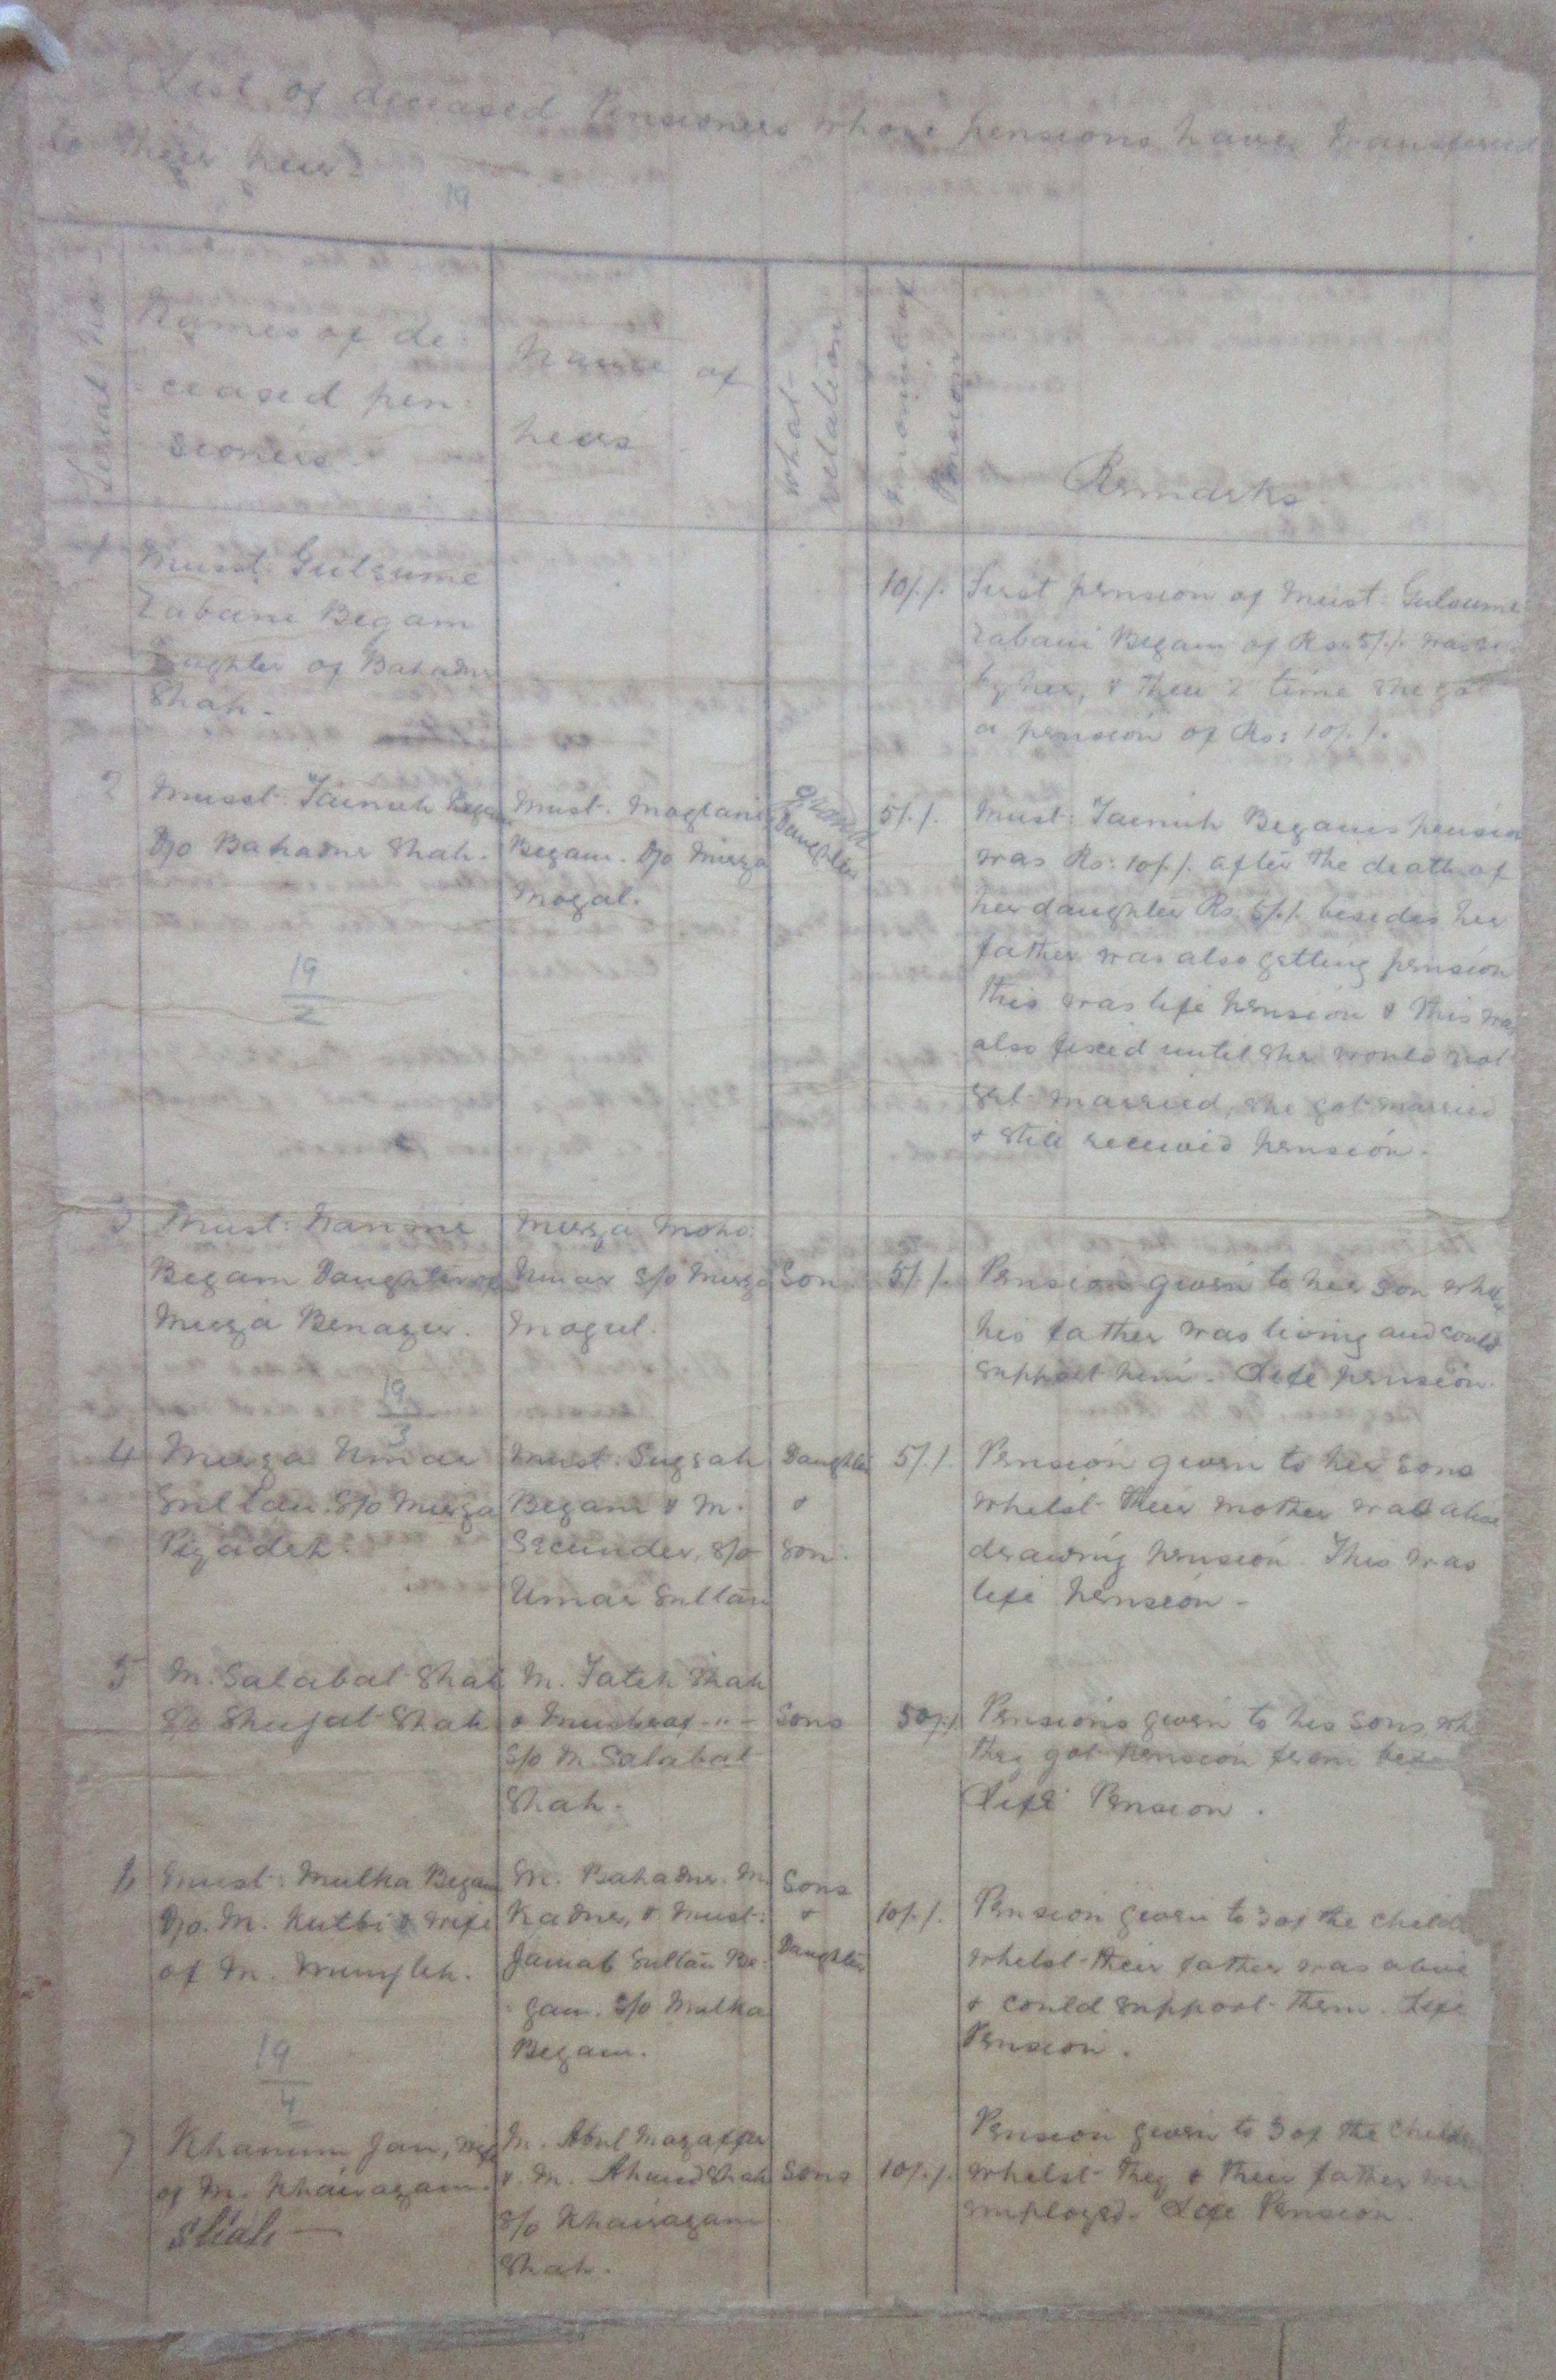 List of deceased Pensioners whose pensions have transfered
to their heirs
19
Serial No.
Names of de-
ceased pen-
sioners.
Name of
heirs
What
relation
Amount of
Pension
Remarks
1
Musst: Gulsume
Zabani Begam
Daughter of Bahadur
Shah.
10/./.
First pension of Musst: Gulsume
Zabani Begam of Rs: 5/./. was
by her, & then 2 time she got
a pension of Rs: 10/./.
2
Musst: Tainuh Begam
D/o Bahadur Shah.
Must. Moglani
Begam. D/o Mirza
Mogal.
Grand
Daughter
5/./.
Must: Tainuh Begams pension
was Rs: 10/./. after the death of
her daughter Rs. 5/./. besides her
father was also getting pension
this was life pension & this was
also fixed until she would not
get married, she got married
& still received pension.
19
2
3
Must: Nanme
Begam Daughter of
Mirza Benazir.
Mirza Moho:
Umar S/o Mirza
Mogul.
Son
5/./.
Pension given to her son whilst
his father was living and could
support him. Life pension
19
3
4
Mirza Umar
Sultan. S/o Mirza
Pizadeh.
Must: Sugrah
Begam & M.
Secunder, S/o
Umar Sultan
Daughter
&
Son.
5/./.
Pension given to her sons
whilst their mother was alive
drawing pension. This was
life pension -
5
M. Salabat Shah
S/o Shujat Shah
M. Fateh Shah
& Musharaf -"-
S/o M. Salabat
Shah.
Sons
50/./.
Pensions given to his sons,
they got pension from
Life Pension.
6
Must: Mulka Begam
D/o. M. Kutbi & wife
of M.
M. Bahadur. M.
Kadur, & Must:
Jamab Sultan Be-
gam. S/o Mulka
Begam.
Sons
&
Daughter
10/./.
Pension given to 3 of the child
whilst their father was alive
& could support them. Life
Pension.
19
4
7
Khanum Jan, wife
of M. Khairazam
Shah —
M. Abul Mazaffer
&. M. Ahmed Shah
S/o Khairazam
Shah.
Sons
10/./.
Pension given to 3 of the children
whilst they & their father were
employed. Life Pension.